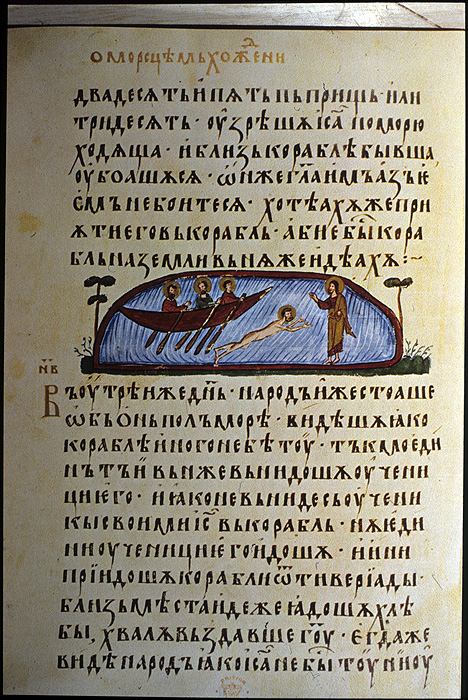 о морсцѣмь хоженⷣи
двадесѧть и пѧть пьприщь · или
тридесѧть · оузрѣшѧ іс҃а по морю
ходѧща · и близь кораблѣ бывша,
оубоашѧсѧ · ѡн же гл҃а имъ азъ ѥ
смъ не боитесѧ · хотѣахѫ же при
ѧти его въ корабль · абиѥ бы кора
бль на земли въ нѫже идѣахѫ :~
н҃в
Въ оутрѣи же дн҃ь · народъ иже стоаше
ѡбъ онъ полъ морѣ · видѣшѧ ꙗко
кораблѣ иного не бѣ тоу · тъкмо еди
нъ тъи въ нже вьнидошѧ оучени
ци его · и ꙗко не вьниде сь оучени
кы своими іс҃ въ корабль · нѫ ѥди
ни оученици его идошѧ · и ини
приидошѧ корабли ѿ тивериады ·
близь мѣста идеже ꙗдошѧ хлѣ
бы, хвалѫ въздавше гоу҃ · егда же
видѣ народъ ꙗко іс҃а не бы тоу ни оу